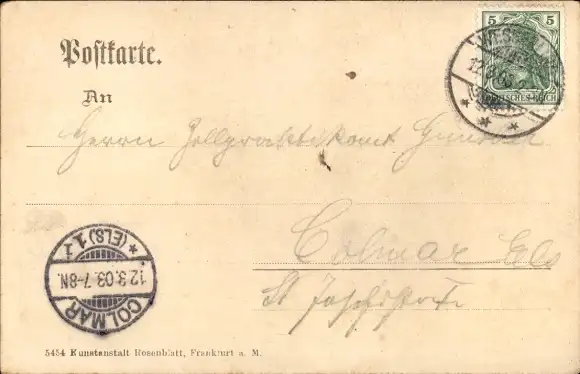 Postkarte.
5 5
DEUTSCHES REICH
An
Herrn Zollpraktikant
Colmar Els
St
COLMAR
12.3.03. 7-8N.
* (ELS) 1
5454 Kunstanstalt Rosenblatt, Frankfurt a. M.